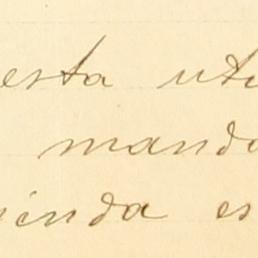 esta uti
mando
ienda es